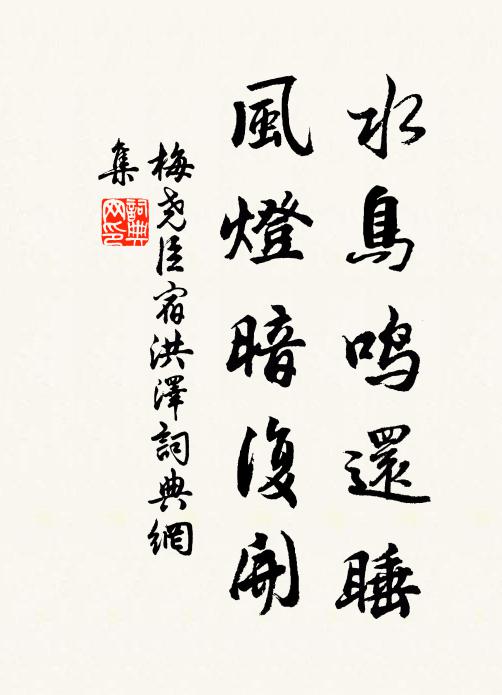 水鳥鳴還睡
風燈暗復開
梅堯臣宿洪澤詞典網
集
詞典
网印